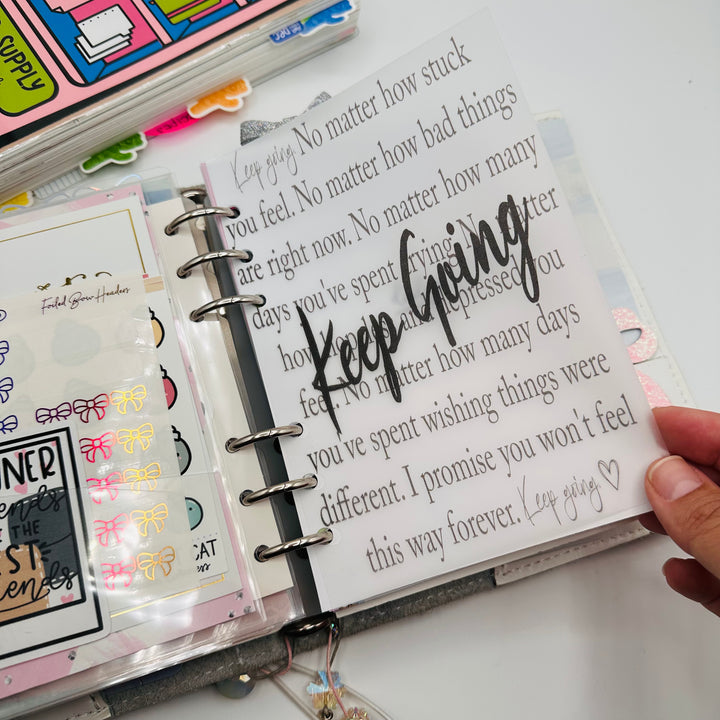 SUPPLY
Keep going No matter how stuck
you feel. No matter how bad things
are right now. No matter how many
days you've spent crying. No matter
how hopeless and depressed you
feel. No matter how many days
you've spent wishing things were
different. I promise you won't feel
this way forever. Keep going
Keep Going
Foiled Bow Headers